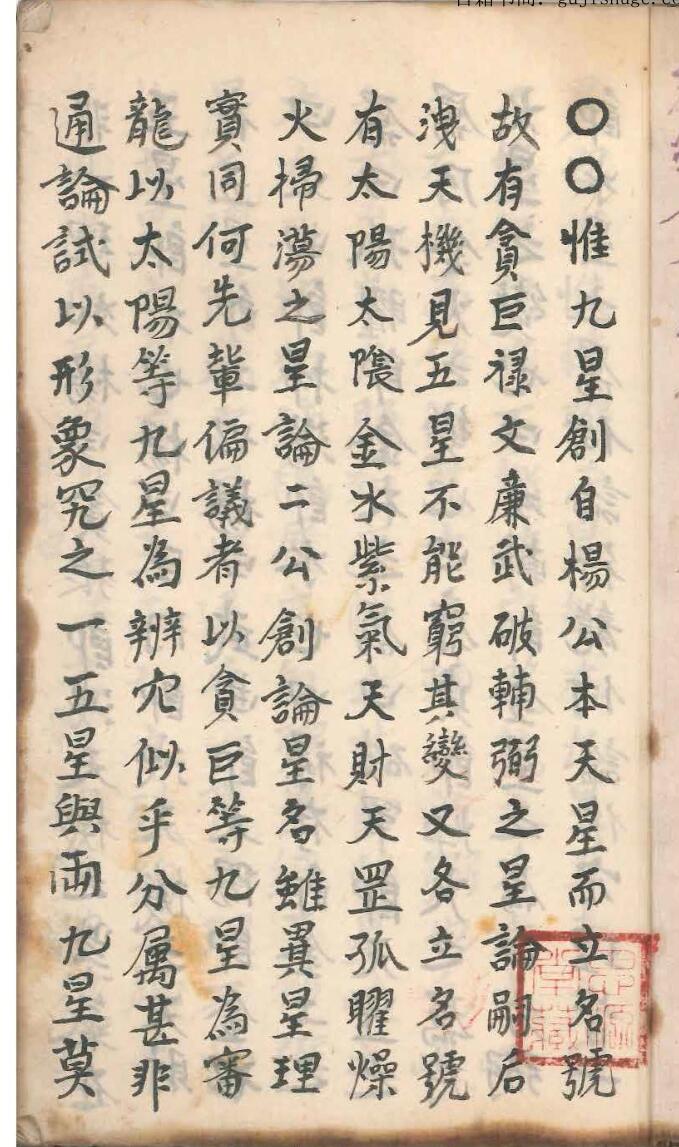 〇〇惟九星創自楊公本天星而立名號
故有貪巨禄文廉武破輔弼之星論嗣后
洩天機見五星不能窮其變又各立名號
有太陽太陰金水紫氣天財天罡孤曜燥
火掃蕩之星論二公創論星名雖異星理
實同何先輩偏議者以貪巨等九星為審
龍以太陽等九星為辨穴似乎分属甚非
通論試以形象究之一五星與兩九星莫